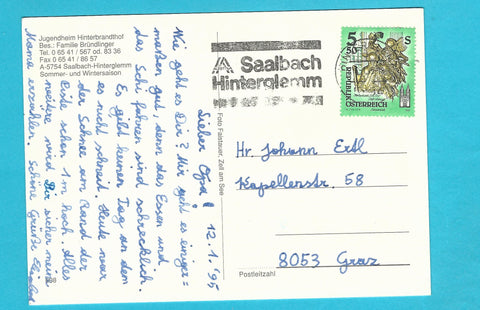 Jugendheim Hinterbrandthof
Bes.: Familie Bründlinger
Tel. 0 65 41 / 567 od. 83 36
Fax 0 65 41 / 86 57
A-5754 Saalbach-Hinterglemm
Sommer- und Wintersaison
Saalbach
Hinterglemm
5 50 S
REPUBLIK
ÖSTERREICH
Foto Faistauer, Zell am See
12.1.'95
Lieber Opa!
Wie geht es Dir? Mir geht es einiger=
maßen gut, denn das Essen und
das Schi fahren sind schrecklich.
Es gibt keinen Tag an dem
es nicht schneit. Heute war
der Schnee am Rand der
Piste schon 1m hoch. Alles
weitere wird Dir sicher meine
Mama erzählen. Schöne Grüße
Hr. Johann Ertl
Kapellenstr. 58
8053 Graz
Postleitzahl